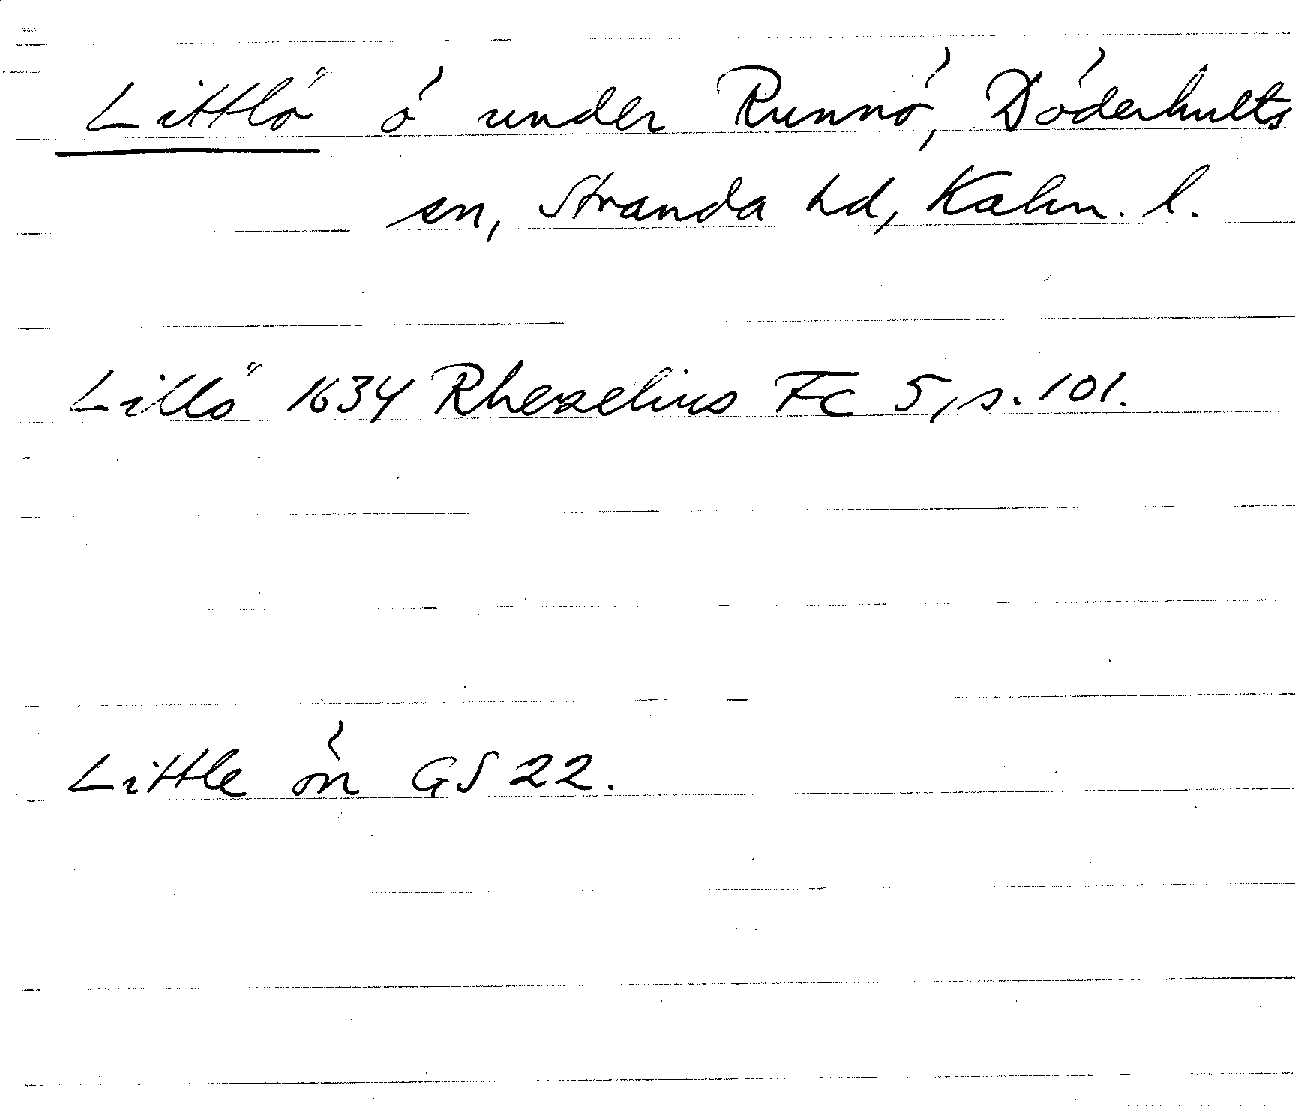 Littlö ö under Runnö, Döderhults
sn, Stranda hd, Kalm. l.
Lillö 1634 Rhezelius Fc 5, s. 101.
Little ön GS 22.